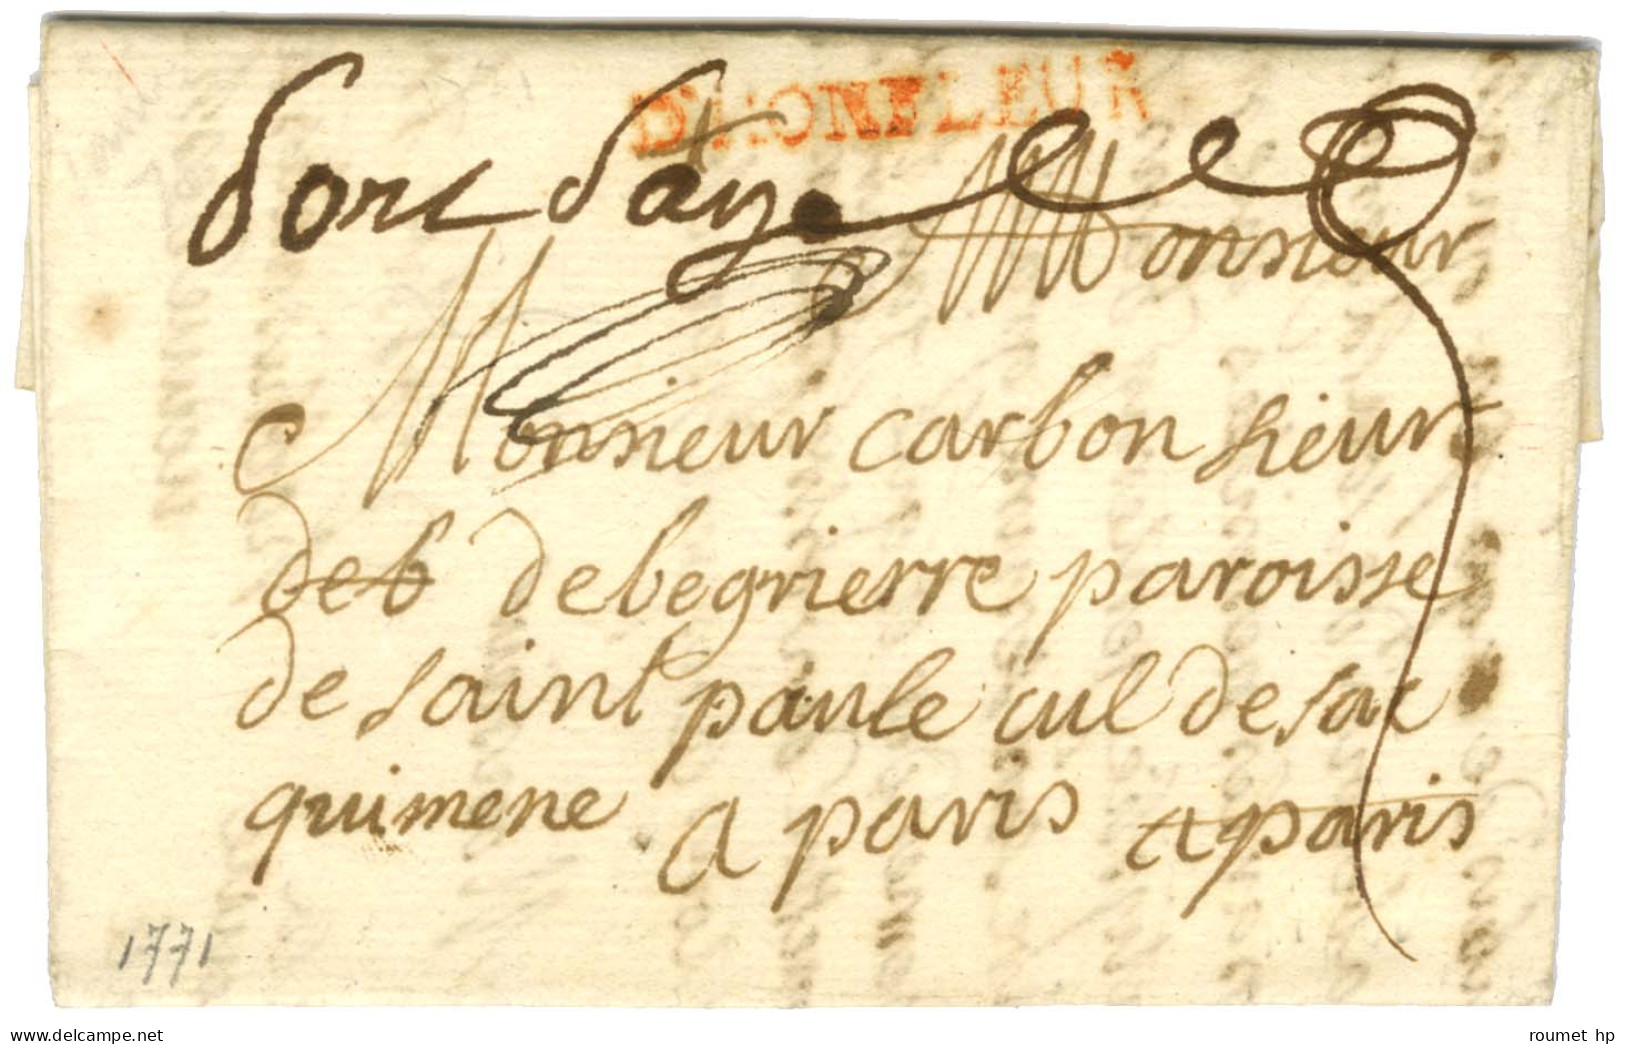 D'HONFLEUR
port payé
Monsieur
Monsieur carbon sieur
deb debegrierre paroisse
de saint paule cul de sac
quimene a paris a paris
1771
roumet hp